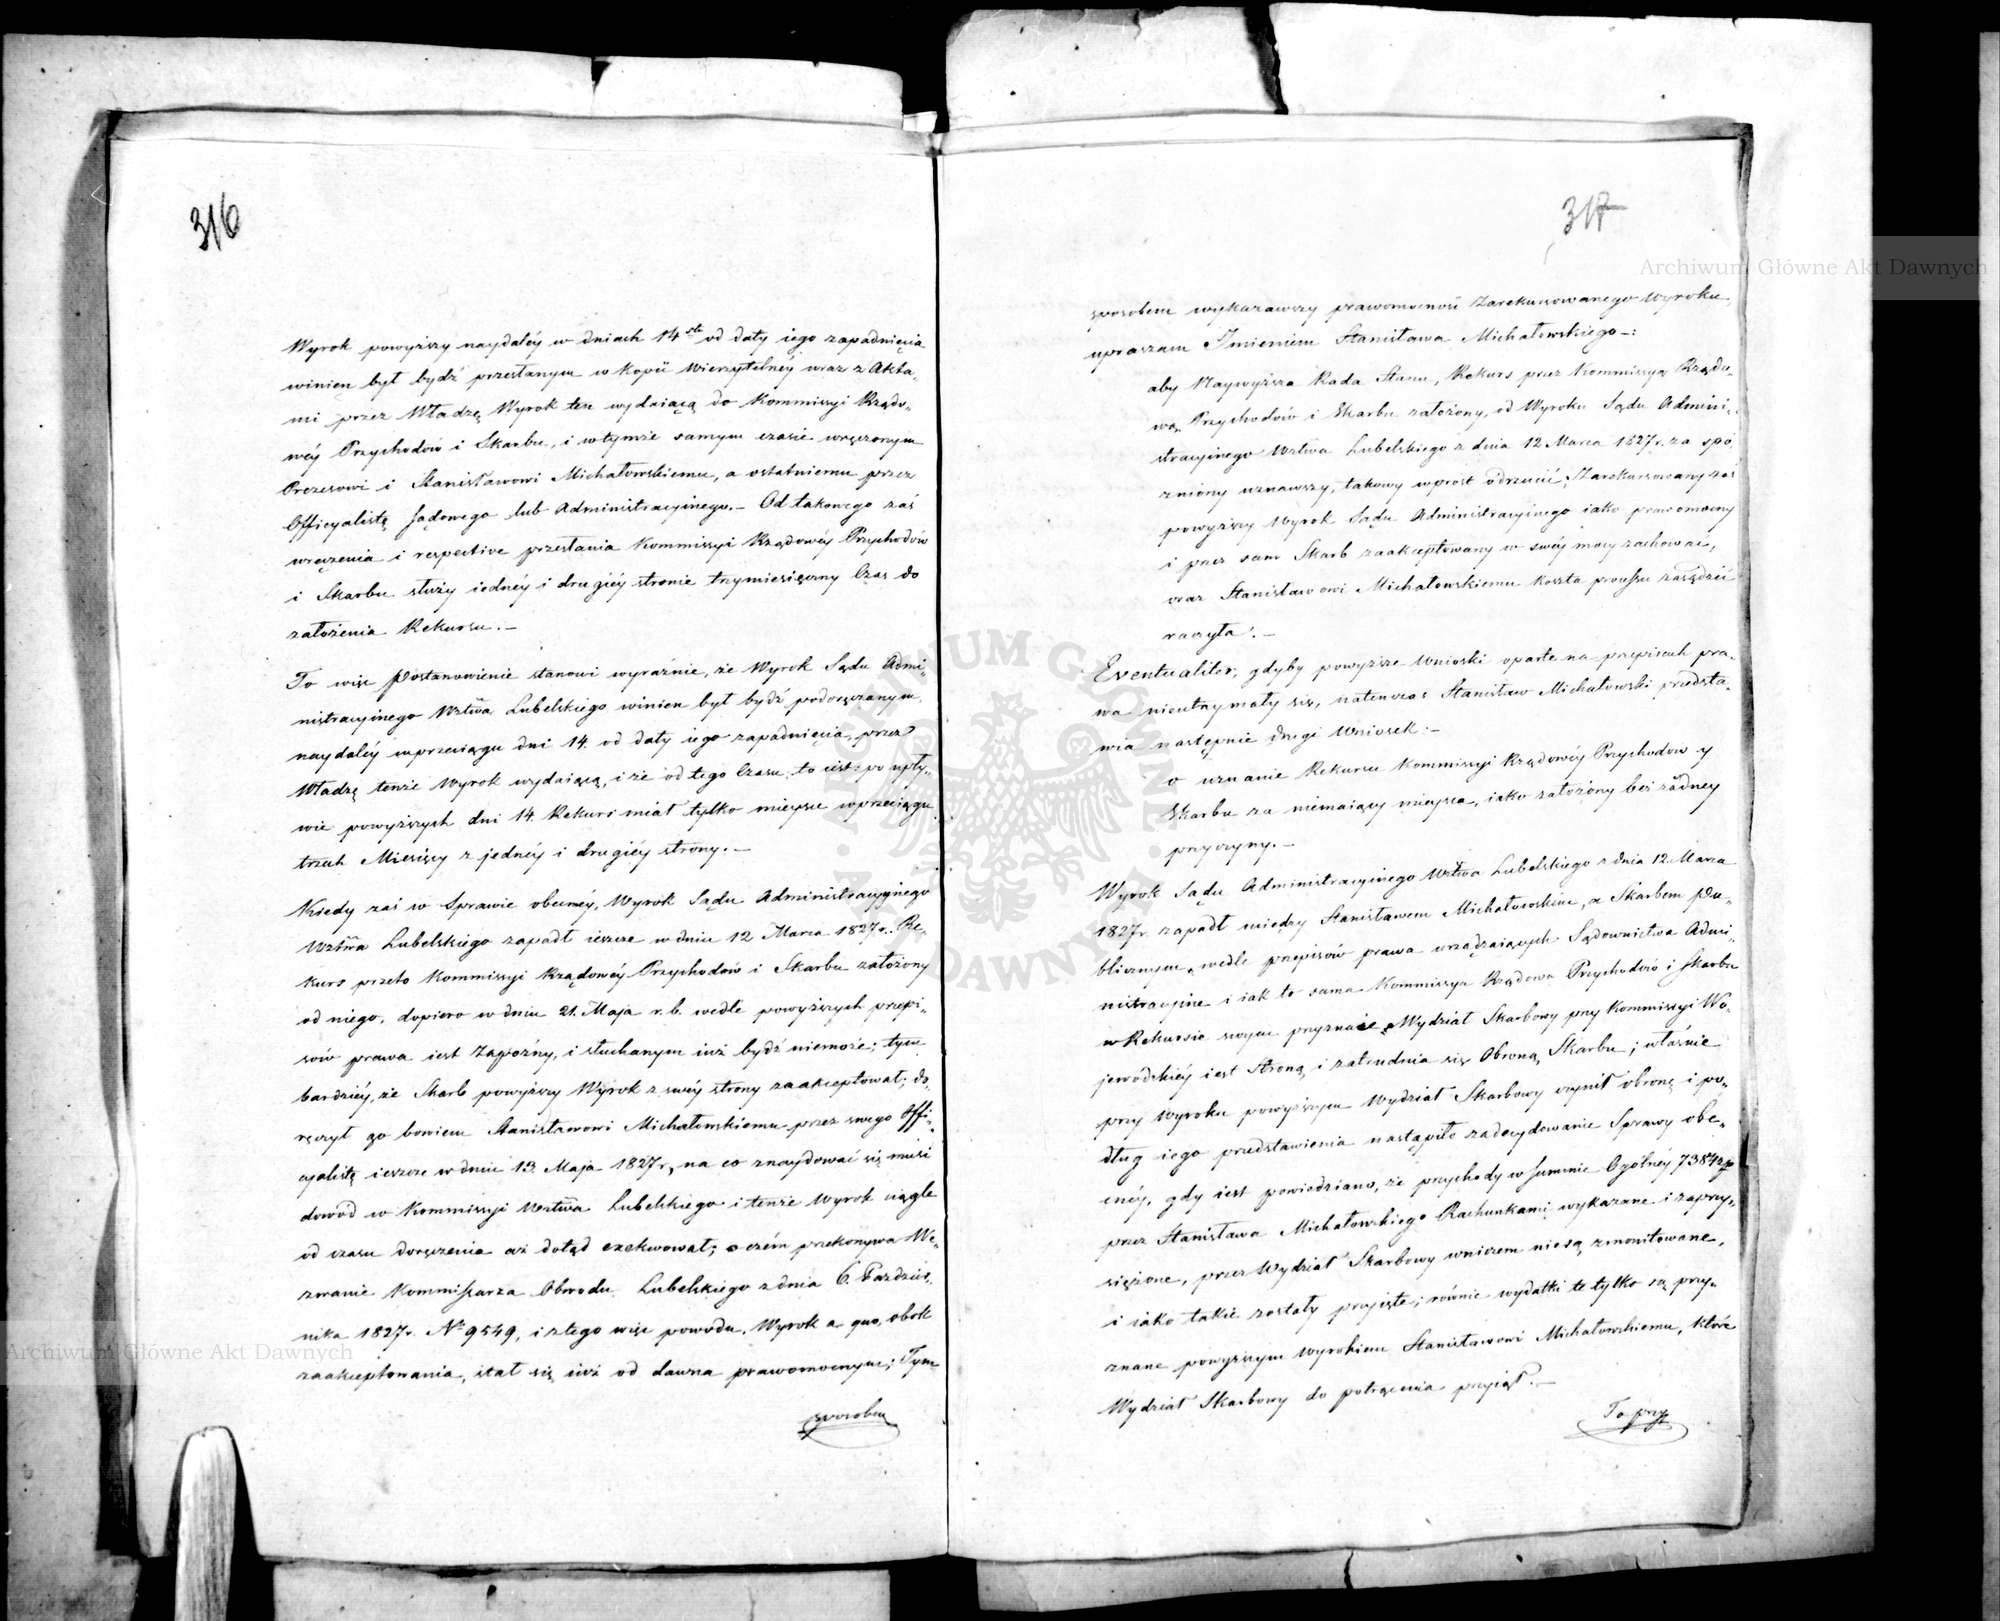 316
Wyrok powyższy naydaléy w dniach 14stu od daty iego zapadnięcia
winien był bydź przesłanym w kopii Wierzytelnéy wraz z Akta,,
mi przez Władzę Wyrok ten wydaiącą do Kommissyi Rządo,,
wéy Przychodów i Skarbu, i w tymże samym czasie wręczonym
Prezesowi i Stanisławowi Michałowskiemu, a ostatniemu przez
Officyalistę Sądowego lub Administracyinego. – Od takowego zaś
wręczenia i respective przesłania Kommissyi Rządowéy Przychodów
i Skarbu służy iednéy i drugiéy stronie trzymiesięczny Czas do
założenia Rekursu. –
To więc Postanowienie stanowi wyraźnie, że Wyrok Sądu Admi,,
nistracyinego Wztwa Lubelskiego winien był bydź podoręczanym
naydaléy w przeciągu dni 14. od daty iego zapadnięcia, przez
Władzę tenże Wyrok wydaiącą, i że od tego Czasu, to iest: po upły,,
wie powyższych dni 14. Rekurs miał tylko mieysce w przeciągu
trzech Miesięcy z jednéy i drugiéy strony. –
Kiedy zaś w Sprawie obecnéy, Wyrok Sądu Administracyynego
Wztwa Lubelskiego zapadł ieszcze w dniu 12 Marca 1827r. Re,,
kurs przeto Kommissyi Rządowéy Przychodów i Skarbu założony
od niego, dopiero w dniu 21. Maja r. b. wedle powyższych przepi,,
sów prawa iest Zapóźny, i słuchanym iuż bydź niemoże; tym
bardziéy, że Skarb powyższy Wyrok z swéy strony zaakceptował; do,,
ręczył go bowiem Stanisławowi Michałowskiemu przez swego Offi,,
cyalistę ieszcze w dniu 13. Maja 1827r, na co znaydować się musi
dowód w Kommissyi Wztwa Lubelskiego i tenże Wyrok ciągle
od czasu doręczenia aż dotąd exekwował; o czém przekonywa We,,
zwanie Kommissarza Obwodu Lubelskiego z dnia 6. Paździer,,
nika 1827r. No 9549, i z tego więc powodu, Wyrok a quo, obok
zaakceptowania, stał się iuż od dawna prawomocnym; Tym
sposobem
317
sposobem wykazawszy prawomocność Zarekursowanego Wyroku,
upraszam Imieniem Stanisława Michałowskiego –:
aby Naywyższa Rada Stanu, Rekurs przez Kommissyą Rządo,,
wą Przychodów i Skarbu założony, od Wyroku Sądu Admini,,
stracyinego Wztwa Lubelskiego z dnia 12 Marca 1827r. za spó,,
zniony uznawszy, takowy wprost odrzucić, Zarekursowany zaś
powyższy Wyrok Sądu Administracyinego iako prawomocny
i przez sam Skarb zaakceptowany w swéy mocy zachować,
oraz Stanisławowi Michałowskiemu koszta processu zasądzić
raczyła. –
Eventualiter, gdyby powyższe Wnioski oparte na przepisach pra,,
wa nieutrzymały się, natenczas Stanisław Michałowski przedsta,,
wia następnie drugi Wniosek: –
o uznanie Rekursu Kommissyi Rządowéy Przychodów y
Skarbu za niemaiący mieysca, iako założony bez żadney
przyczyny. –
Wyrok Sądu Administracyinego Wztwa Lubelskiego z dnia 12. Marca
1827r. zapadł między Stanisławem Michałowskim, a Skarbem Pu,,
blicznym, wedle przepisów prawa urządzaiących Sądownictwa Admi,,
nistracyine i iak to sama Kommissya Rządowa Przychodów i Skarbu
w Rekursie swym przyznaie, Wydział Skarbowy przy Kommissyi Wo,,
jewódzkiéy iest Stroną i zatrudnia się Obroną Skarbu; właśnie
przy Wyroku powyższym Wydział Skarbowy czynił obronę i po,,
dług iego przedstawienia nastąpiło zadecydowanie Sprawy obe,,
cnéy, gdy iest powiedziano, że przychody w Summie Ogólnéy 7384 zp
przez Stanisława Michałowskiego Rachunkami wykazane i zaprzy,,
siężone, przez Wydział Skarbowy wniczem niesą zmonitowane,
i iako takie zostały przyięte; równie wydatki te tylko są przy,,
znane powyższym Wyrokiem Stanisławowi Michałowskiemu, które
Wydział Skarbowy do potrącenia przyiął. –
To przy
Archiwum Główne Akt Dawnych
Archiwum Główne Akt Dawnych
ARCHIWUM GŁÓWNE AKT DAWNYCH